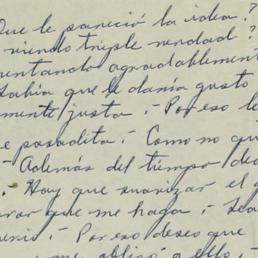 Que le pareció la idea?
viendo triple verdad?
entando agradablement
sabía que le daría gusto
mente justa,- Por eso l
e pasadita;- Como no qu
- Además del tiempo de
- Hay que suavizar el g
rar que me haga;-
Por eso deseo que
me obligó a ello,-